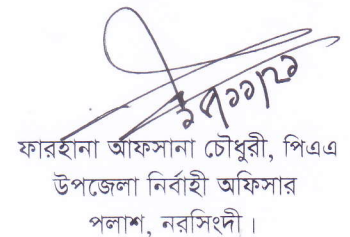 ফারহানা আফসানা চৌধুরী, পিএএ
উপজেলা নির্বাহী অফিসার
পলাশ, নরসিংদী।